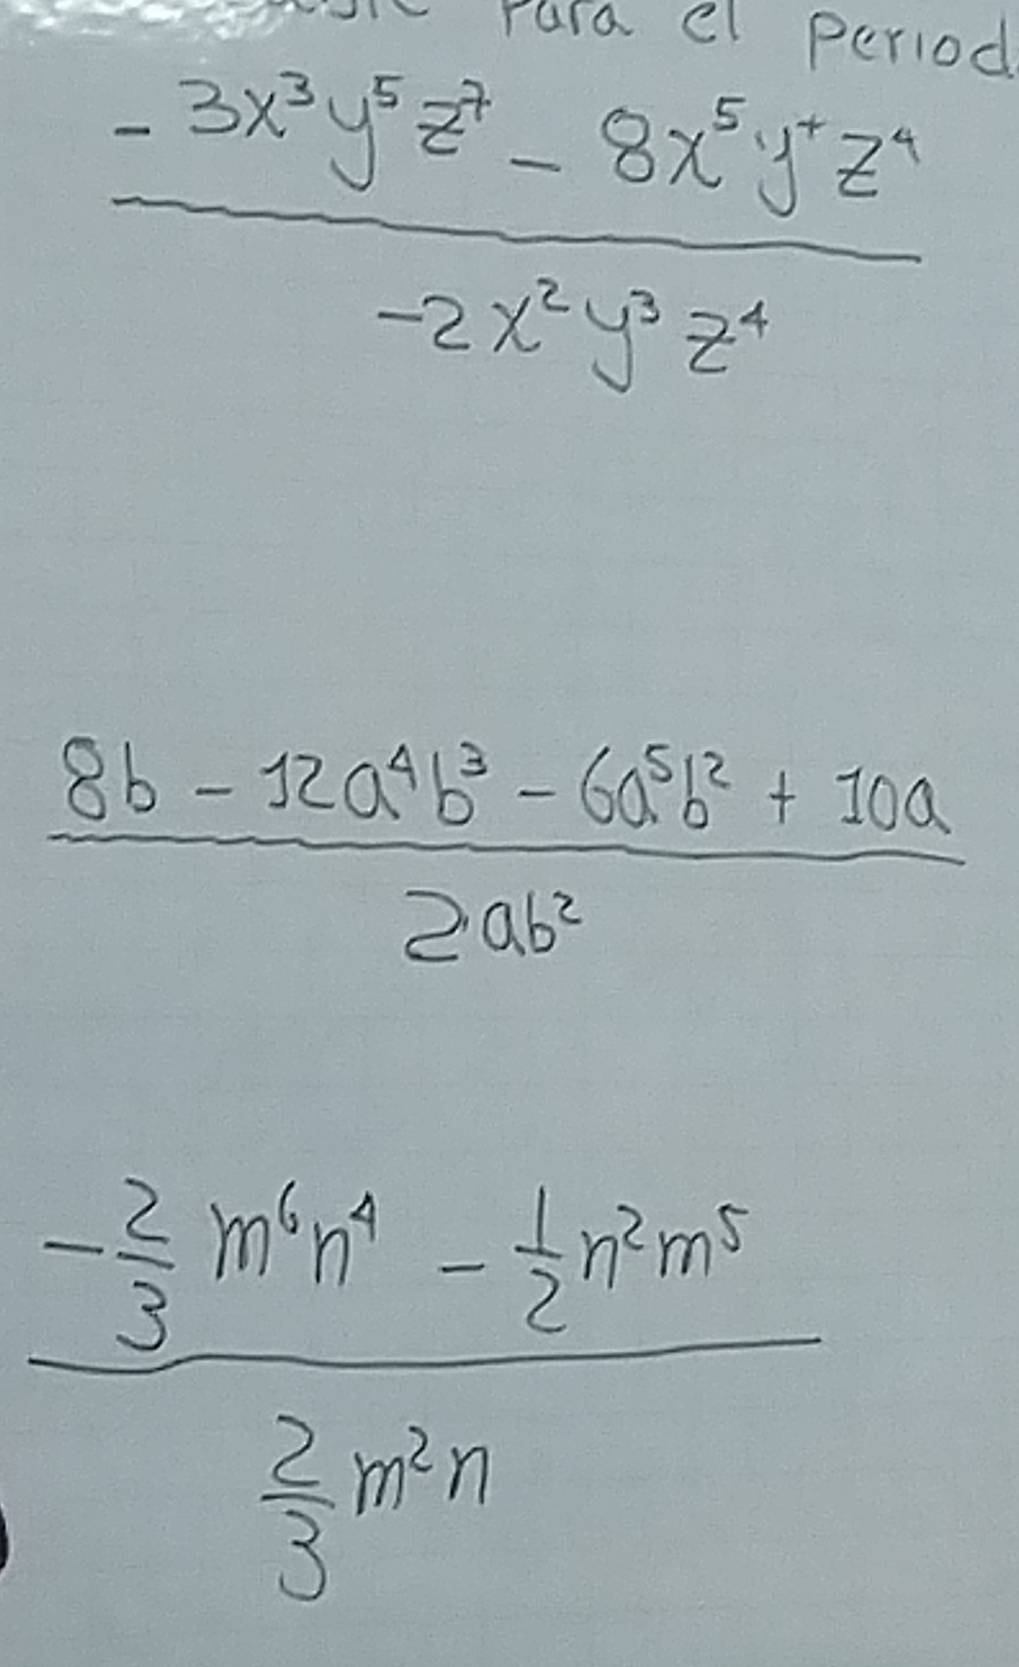 Para el Period
-3x³y⁵z⁷ - 8x⁵y⁺z⁴
-2x²y³z⁴
8b - 12a⁴b³ - 6a⁵b² + 10a
2ab²
-2/3 m⁶n⁴ - 1/2 n²m⁵
2/3 m²n